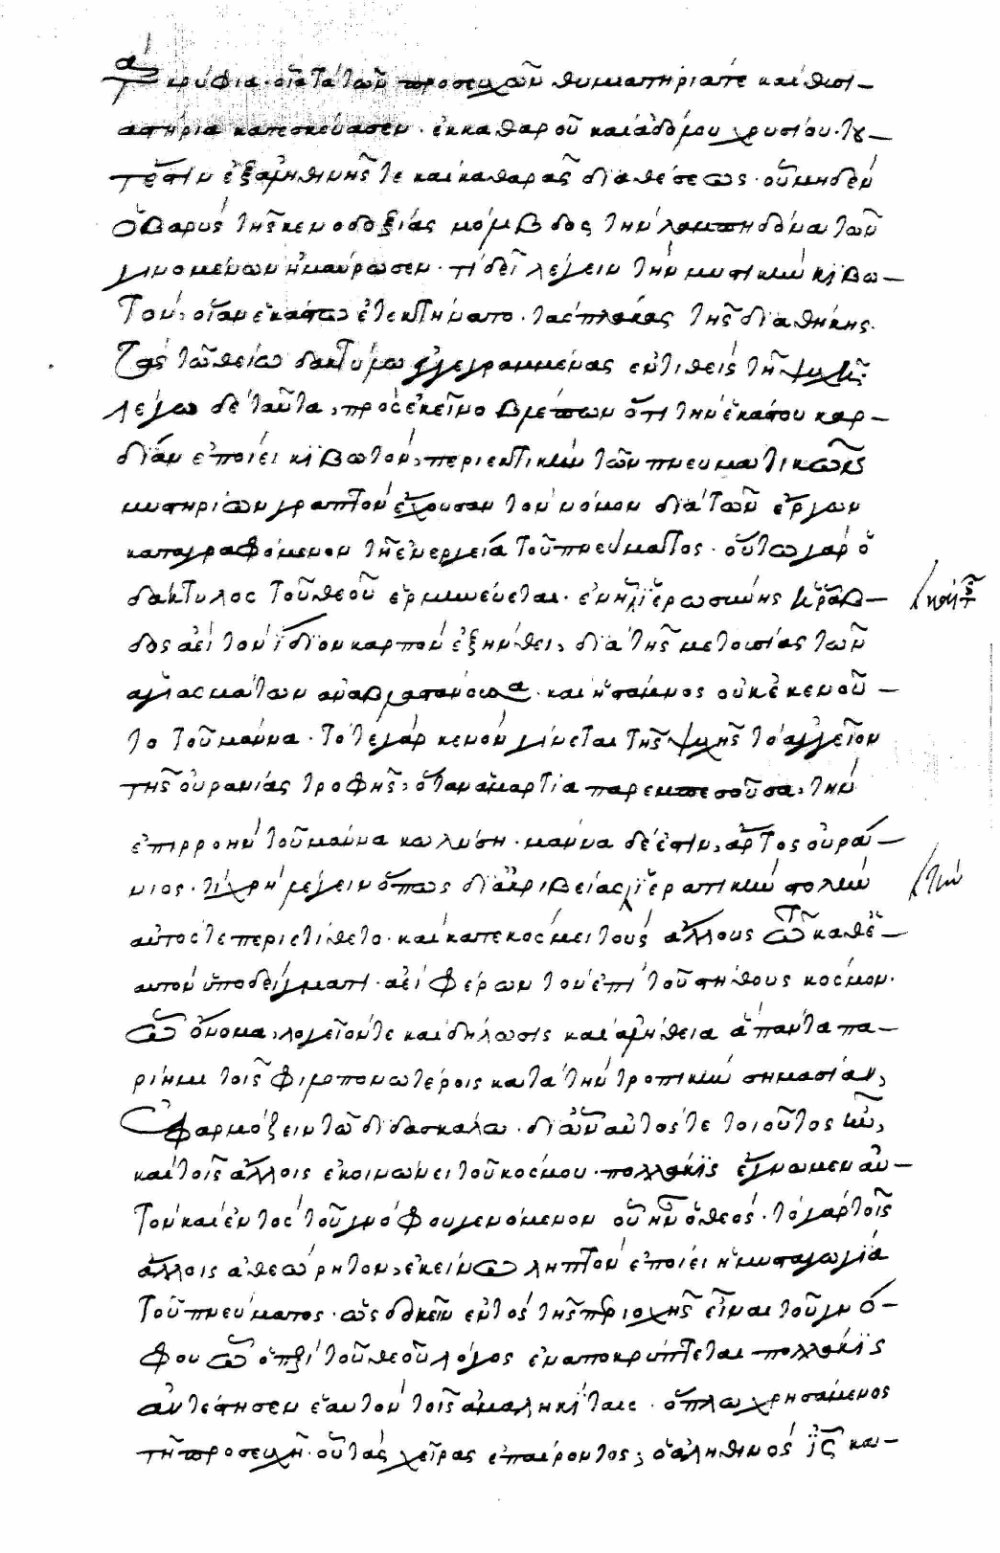 κρύφια· οἷα τὰ τῶν προσευχῶν θυμιατήριά τε καὶ θυσι-
αστήρια κατεσκεύασεν· ἐκ καθαροῦ καὶ ἀδόλου χρυσίου· του-
τέστιν ἐξ ἀληθινῆς τε καὶ καθαρᾶς διαθέσεως· οὗ μηδὲν
ὁ βαρὺς τῆς κενοδοξίας μόλιβδος τὴν λαμπηδόνα τῶν
γινομένων ἠμαύρωσεν· τί δεῖ λέγειν τὴν μυστικὴν κιβω-
τόν, οἵαν ἑκάστῳ ἐτεκτήνατο· τὰς πλάκας τῆς διαθήκης·
τὰς τῷ θείῳ δακτύλῳ ἐγγεγραμμένας ἐντιθεὶς τῇ ψυχῇ·
λέγω δὲ ταῦτα, πρὸς ἐκεῖνο βλέπων ὅτι τὴν ἑκάστου καρ-
δίαν ἐποίει κιβωτόν, περιεκτικὴν τῶν πνευματικῶν
μυστηρίων γραπτὸν ἔχουσαν τὸν νόμον διὰ τῶν ἔργων
καταγραφόμενον τῇ ἐνεργείᾳ τοῦ πνεύματος· οὕτω γὰρ ὁ
δάκτυλος τοῦ θεοῦ ἑρμηνεύεται· ἐν ᾗ ἱερωσύνης ἡ ῥάβ-
δος ἀεὶ τὸν ἴδιον καρπὸν ἐξήνθει, διὰ τῆς μετουσίας τῶν
ἁγιασμάτων ἀναβλαστάνουσα· καὶ ἡ στάμνος οὐκ ἐκενοῦ-
το τοῦ μάννα· τότε γὰρ κενὸν γίνεται τῆς ψυχῆς τὸ ἀγγεῖον
τῆς οὐρανίας τροφῆς, ὅταν ἁμαρτία παρεμπεσοῦσα, τὴν
ἐπιρροὴν τοῦ μάννα κωλύσῃ· μάννα δέ ἐστιν, ἄρτος οὐρά-
νιος· τί χρὴ λέγειν ὅπως δι' ἀκριβείας ἱερατικὴν στολὴν
αὐτός τε περιετίθετο· καὶ κατεκόσμει τοὺς ἄλλους τῷ καθ' ἑ-
αυτὸν ὑποδείγματι· ἀεὶ φέρων τὸν ἐπὶ τοῦ στήθους κόσμον·
ᾧ ὄνομα, λογεῖόν τε καὶ δήλωσις καὶ ἀλήθεια ἅπαντα πα-
ρίημι τοῖς φιλοπονωτέροις κατὰ τὴν τροπικὴν σημασίαν,
ἐφαρμόζειν τῷ διδασκάλῳ· δι' ὧν αὐτός τε τοιοῦτος ἦν,
καὶ τοῖς ἄλλοις ἐκοινώνει τοῦ κόσμου· πολλάκις ἔγνωμεν αὐ-
τὸν καὶ ἐντὸς τοῦ γνόφου γενόμενον οὗ ἦν ὁ θεός· τὸ γὰρ τοῖς
ἄλλοις ἀθεώρητον, ἐκείνῳ ληπτὸν ἐποίει ἡ μυσταγωγία
τοῦ πνεύματος· ὡς δοκεῖν ἐντὸς τῆς περιοχῆς εἶναι τοῦ γνό-
φου ᾧ ὁ περὶ τοῦ θεοῦ λόγος ἐναποκρύπτεται πολλάκις
ἀντέστησεν ἑαυτὸν τοῖς ἀμαληκίταις· ὅπλῳ χρησάμενος
τῇ προσευχῇ· οὗ τὰς χεῖρας ἐπαίροντος, ὁ ἀληθινὸς ἰς κα-
τὴν